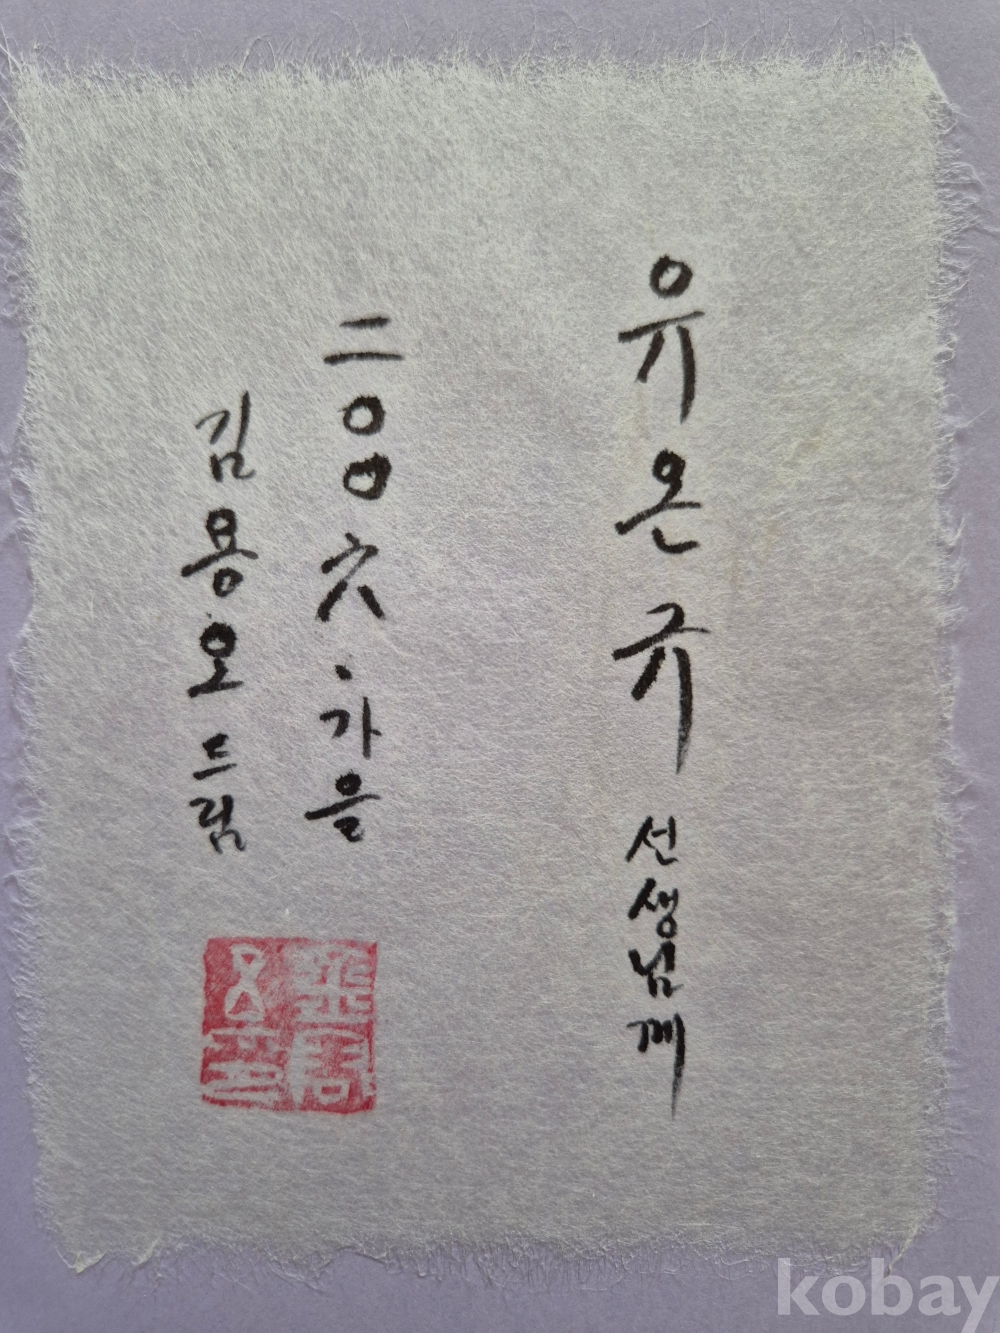 유온규 선생님께
二00六.가을
김용오 드림
kobay